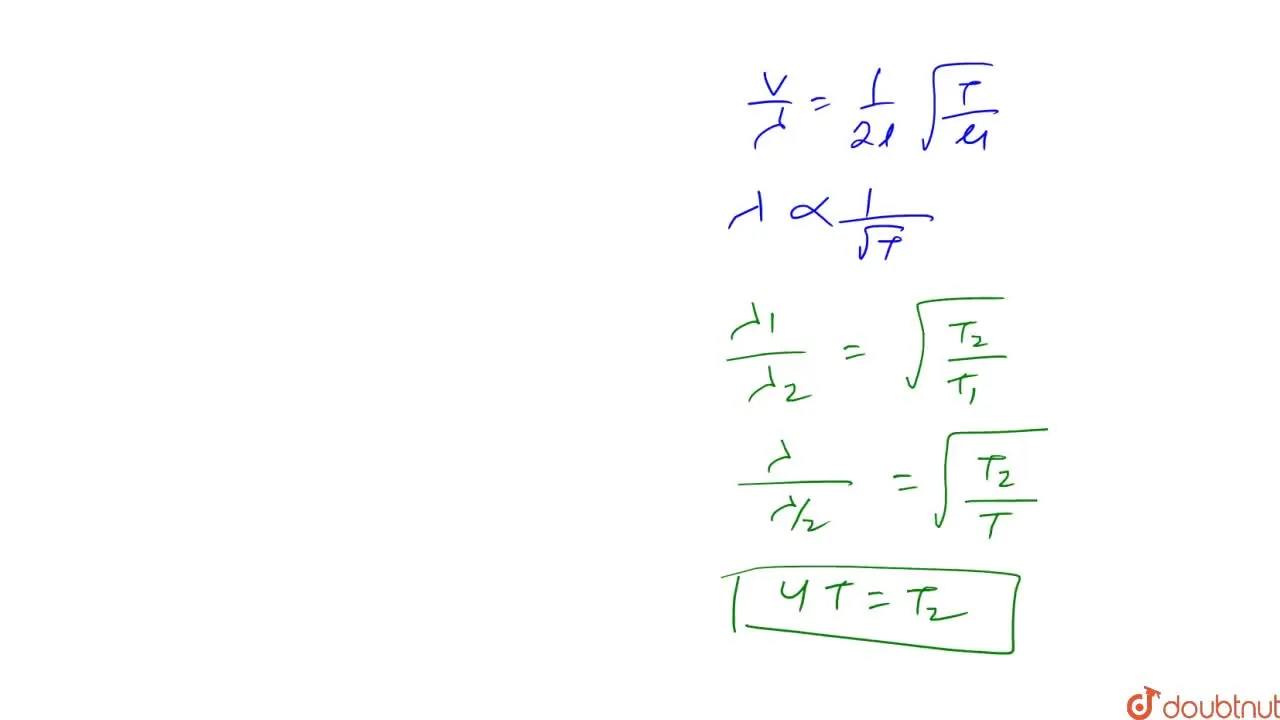 V/λ = 1/2l √T/μ
λ ∝ 1/√T
λ1/λ2 = √T2/T1
λ/λ/2 = √T2/T
4T = T2
doubtnut